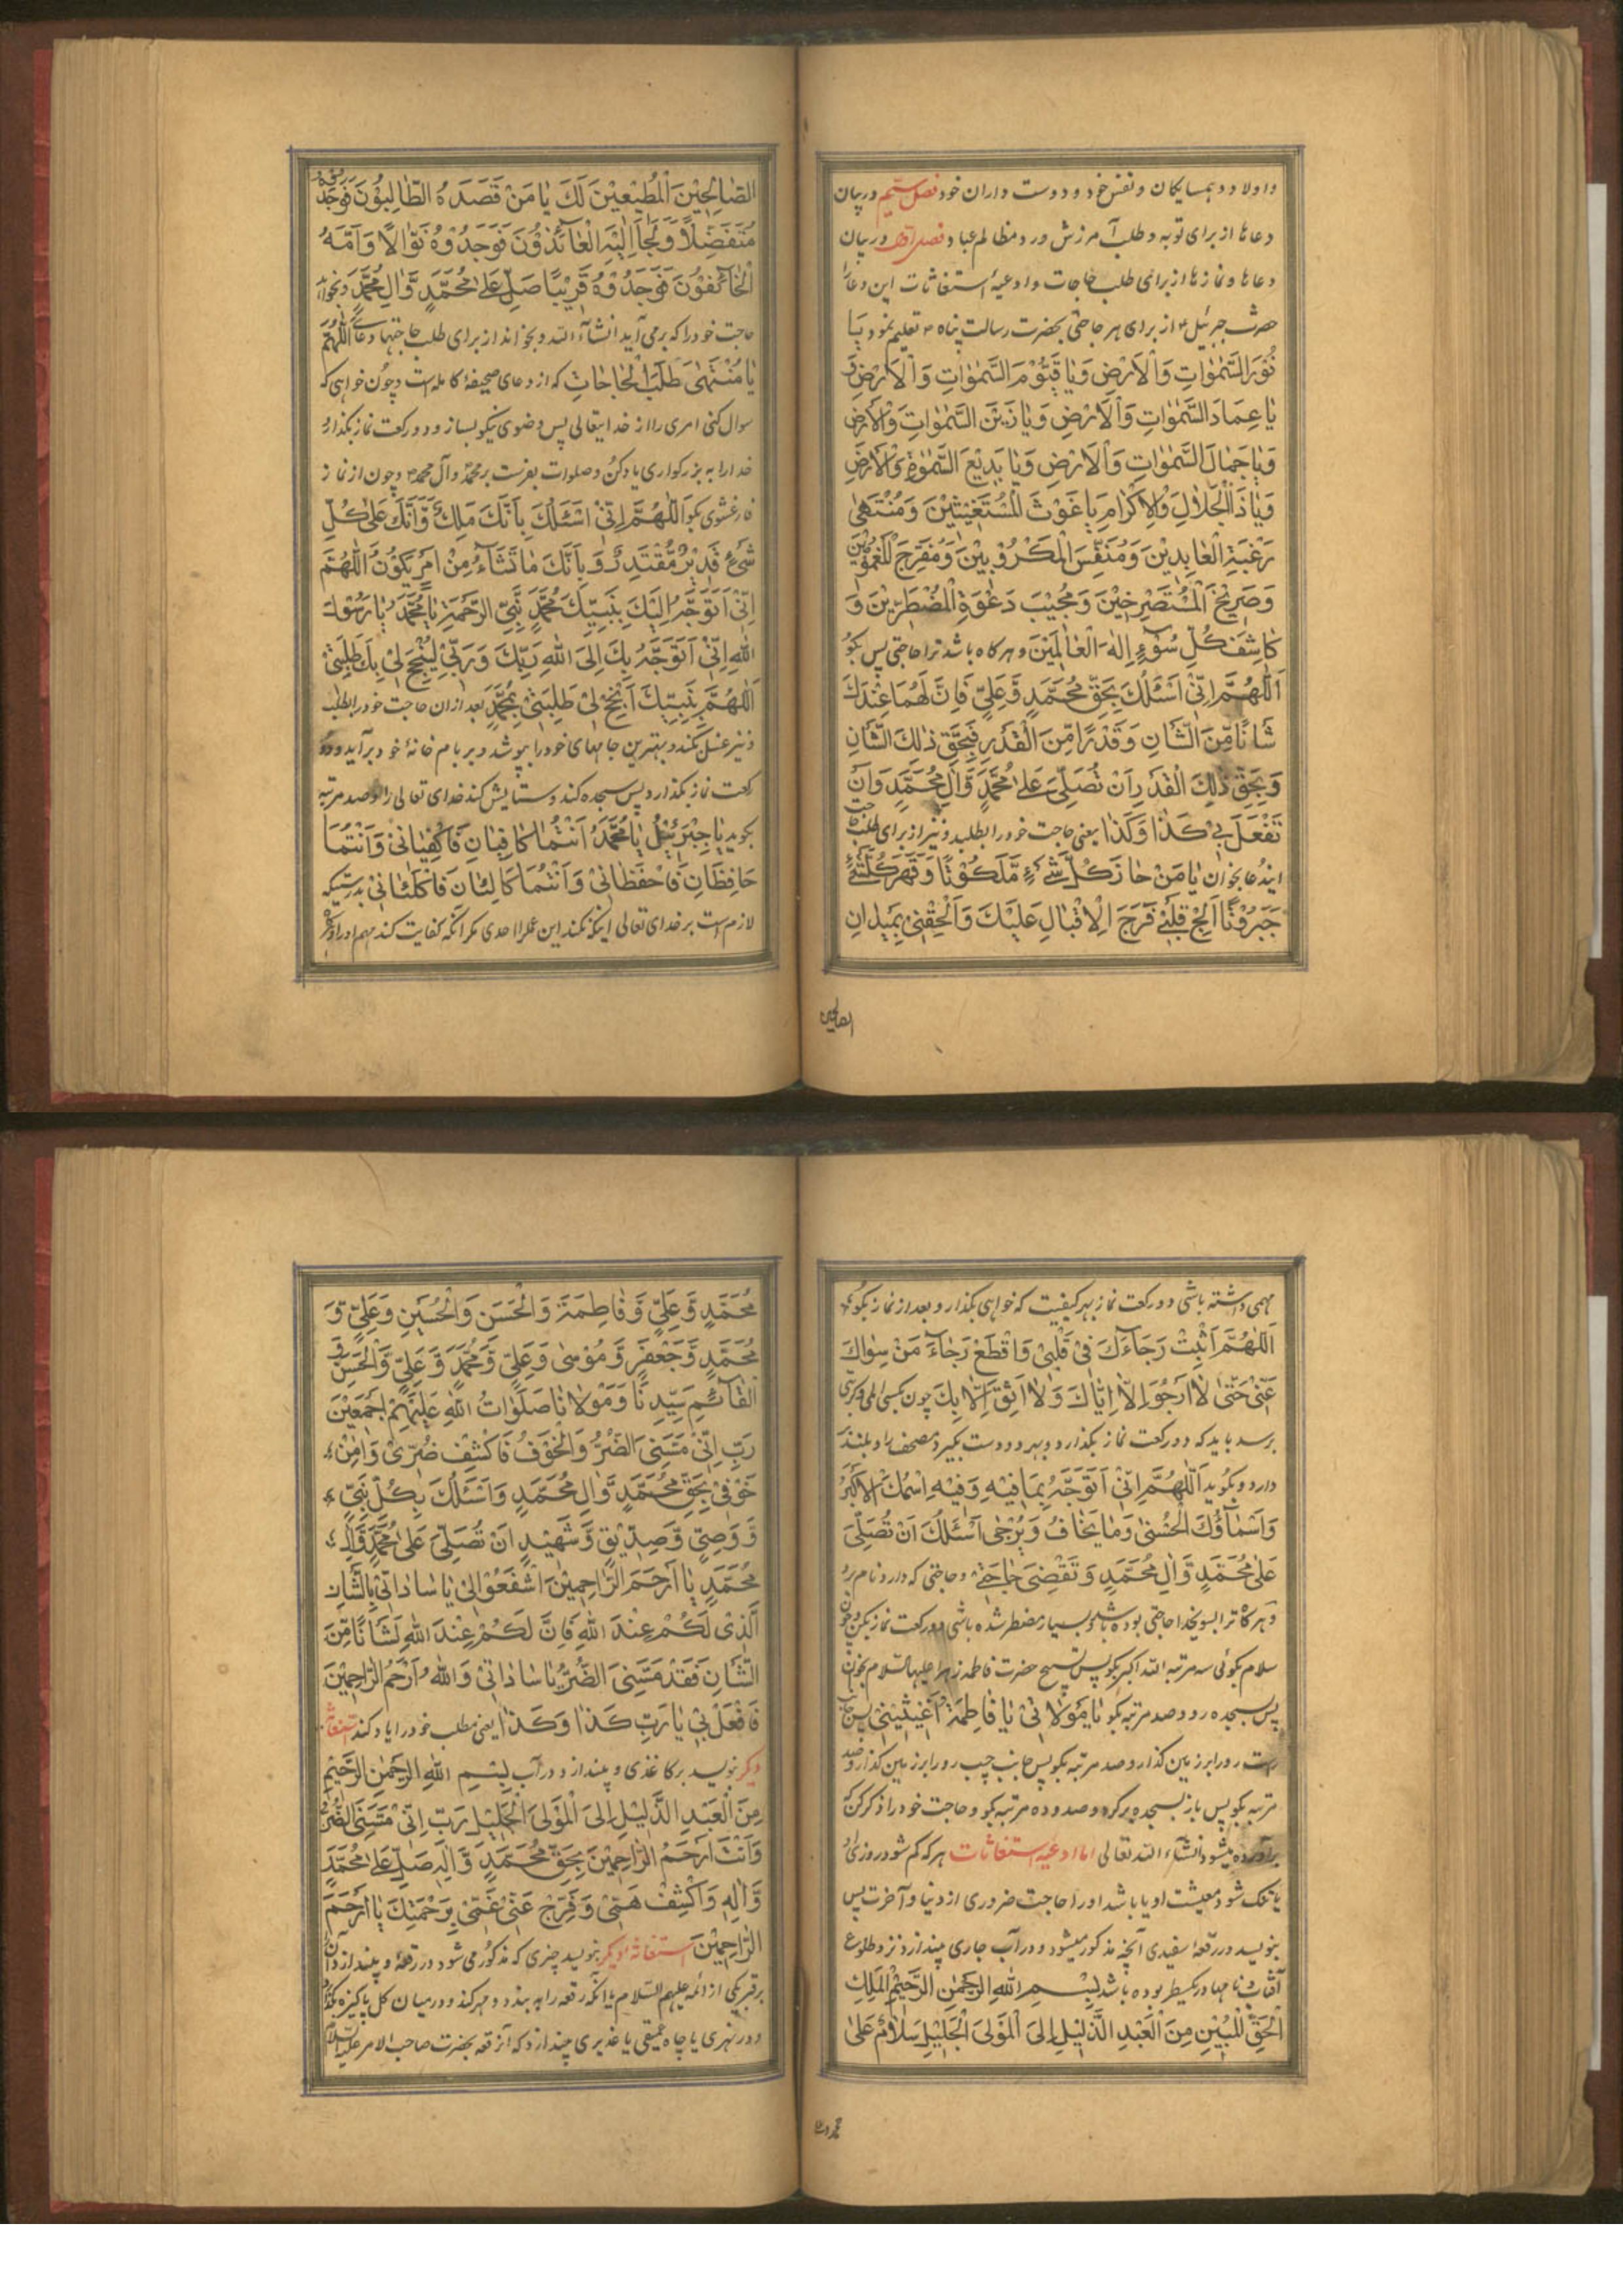 و اولاد و همسایگان و نفس خود و دوست داران خود فصل ستیم در بیان
دعاها از برای توبه و طلب آمرزش و رد مظالم عباد فصل اول در بیان
دعاها و نمازها از برای طلب حاجات و ادعیهٔ استغاثات این دعا را
حضرت جبرئیل ۴ از برای هر حاجتی بحضرت رسالت پناه ۳ تعلیم نمود یَا
نُوْرَ السَّمٰوَاتِ وَالْاَرْضِ وَیَا قَیُّوْمَ السَّمٰوَاتِ وَالْاَرْضِ وَ
یَا عِمَادَ السَّمٰوَاتِ وَالْاَرْضِ وَیَا زَیْنَ السَّمٰوَاتِ وَالْاَرْضِ
وَیَا جَمَالَ السَّمٰوَاتِ وَالْاَرْضِ وَیَا بَدِیْعَ السَّمٰوٰةِ وَالْاَرْضِ
وَیَا ذَا الْجَلَالِ وَالْاِکْرَامِ یَا غَوْثَ الْمُسْتَغِیْثِیْنَ وَمُنْتَهٰی
رَغْبَةِ الْعَابِدِیْنَ وَمُنَفِّسَ الْمَکْرُوْبِیْنَ وَمُفَرِّجَ الْمَغْمُوْمِیْنَ
وَصَرِیْخَ الْمُسْتَصْرِخِیْنَ وَمُجِیْبَ دَعْوَةِ الْمُضْطَرِّیْنَ وَ
کَاشِفَ کُلِّ سُوْءٍ اِلٰهَ الْعَالَمِیْنَ و هرگاه باشد ترا حاجتی پس بگو
اَللّٰهُمَّ اِنِّیْ اَسْئَلُكَ بِحَقِّ مُحَمَّدٍ وَّعَلِیٍّ فَاِنَّ لَهُمَا عِنْدَكَ
شَانًا مِّنَ الشَّانِ وَقَدْرًا مِّنَ الْقَدْرِ فَبِحَقِّ ذٰلِكَ الشَّانِ
وَبِحَقِّ ذٰلِكَ الْقَدْرِ اَنْ تُصَلِّیَ عَلٰی مُحَمَّدٍ وَّاٰلِ مُحَمَّدٍ وَاَنْ
تَفْعَلَ بِیْ کَذَا وَکَذَا یعنی حاجت خود را بطلبد و نیز از برای طلب حاجت
ایندعا بخوان یَا مَنْ حَازَ کُلَّ شَیْءٍ مَّلَکُوْتًا وَّقَهَرَ کُلَّ شَیْءٍ
جَبَرُوْتًا اَلِجْ قَلْبِیْ فَرَحَ الْاِقْبَالِ عَلَیْكَ وَاَلْحِقْنِیْ بِمَیْدَانِ
الصالحین
الصَّالِحِیْنَ الْمُطِیْعِیْنَ لَكَ یَا مَنْ قَصَدَهُ الطَّالِبُوْنَ فَوَجَدُوْهُ
مُتَفَضِّلًا وَّلَجَأَ اِلَیْهِ الْعَائِذُوْنَ فَوَجَدُوْهُ نَوَّالًا وَاَمَّهُ
الْخَائِفُوْنَ فَوَجَدُوْهُ قَرِیْبًا صَلِّ عَلٰی مُحَمَّدٍ وَّاٰلِ مُحَمَّدٍ و بخواه
حاجت خود را که برمی آید انشاء الله و بخواند از برای طلب حاجتها دعاے اَللّٰهُمَّ
یَا مُنْتَهٰی طَلَبِ الْحَاجَاتِ که از دعای صحیفهٔ کامله است و چون خواهی که
سوال کنی امری را از خدایتعالی پس وضوی نیکو بساز و دو رکعت نماز بگذار و
خدا را به بزرگواری یاد کن و صلوات بفرست بر محمد و آل محمد ۳ و چون از نماز
فارغ شوی بگو اَللّٰهُمَّ اِنِّیْ اَسْئَلُكَ بِاَنَّكَ مَلِكٌ وَّاَنَّكَ عَلٰی کُلِّ
شَیْءٍ قَدِیْرٌ مُّقْتَدِرٌ وَّبِاَنَّكَ مَا تَشَآءُ مِنْ اَمْرٍ یَکُوْنُ اَللّٰهُمَّ
اِنِّیْ اَتَوَجَّهُ اِلَیْكَ بِنَبِیِّكَ مُحَمَّدٍ نَّبِیِّ الرَّحْمَةِ یَا مُحَمَّدُ یَا رَسُوْلَ
اللّٰهِ اِنِّیْ اَتَوَجَّهُ بِكَ اِلَی اللّٰهِ رَبِّكَ وَرَبِّیْ لِیُنْجِحَ لِیْ بِكَ طَلِبَتِیْ
اَللّٰهُمَّ بِنَبِیِّكَ اَنْجِحْ لِیْ طَلِبَتِیْ بِمُحَمَّدٍ بعد ازان حاجت خود را بطلبد
و نیز غسل بکند و بهترین جامهای خود را بپوشد و بر بام خانهٔ خود برآید و دو
رکعت نماز بگذارد پس سجده کند و ستایش کند خدای تعالی را و صد مرتبه
بگوید یَا جِبْرَئِیْلُ یَا مُحَمَّدُ اَنْتُمَا کَافِیَانِ فَاکْفِیَانِیْ وَاَنْتُمَا
حَافِظَانِ فَاحْفَظَانِیْ وَاَنْتُمَا کَالِئَانِ فَاکْلَئَانِیْ بدرستیکه
لازم است بر خدای تعالی اینکه نکند این عمل را احدی مگر آنکه کفایت کند مهم او را و اگر
مهمی داشته باشی دو رکعت نماز بهر کیفیت که خواهی بگذار و بعد از نماز بگو
اَللّٰهُمَّ اَثْبِتْ رَجَآءَكَ فِیْ قَلْبِیْ وَاقْطَعْ رَجَآءَ مَنْ سِوَاكَ
عَنِّیْ حَتّٰی لَا اَرْجُوَ اِلَّا اِیَّاكَ وَلَا اَثِقَ اِلَّا بِكَ چون کسی را المی و کربی
برسد باید که دو رکعت نماز بگذارد و بهر دو دست بگیرد مصحف را و بلند
دارد و بگوید اَللّٰهُمَّ اِنِّیْ اَتَوَجَّهُ بِمَا فِیْهِ وَفِیْهِ اسْمُكَ الْاَکْبَرُ
وَاَسْمَآؤُكَ الْحُسْنٰی وَمَا یُخَافُ وَیُرْجٰی اَسْئَلُكَ اَنْ تُصَلِّیَ
عَلٰی مُحَمَّدٍ وَّاٰلِ مُحَمَّدٍ وَتَقْضِیَ حَاجَتِیْ و حاجتی که دارد نام برد
و هرگاه ترا بسوی خدا حاجتی بوده باشد و بسیار مضطر شده باشی دو رکعت نماز بکن و چون
سلام بگوئی سه مرتبه الله اکبر بگو پس تسبیح حضرت فاطمه زهرا علیها السلام بخوان
پس بسجده رو و صد مرتبه بگو یَا مَوْلَاتِیْ یَا فَاطِمَةُ اَغِیْثِیْنِیْ پس جانب
راست رو را بر زمین گذار و صد مرتبه بگو پس جانب چپ رو را بر زمین گذار و صد
مرتبه بگو پس باز بسجده برگرد و صد و ده مرتبه بگو و حاجت خود را ذکر کن که
برآورده میشود انشاء الله تعالی اما ادعیه استغاثات هرکه کم شود روزی او
یا تنگ شود معیشت او یا باشد او را حاجت ضروری از دنیا و آخرت پس
بنویسد در رقعهٔ سفیدی آنچه مذکور میشود و در آب جاری بیندازد نزد طلوع
آفتاب و نامها در یکسطر بوده باشد بِسْمِ اللّٰهِ الرَّحْمٰنِ الرَّحِیْمِ الْمَلِكِ
الْحَقِّ الْمُبِیْنِ مِنَ الْعَبْدِ الذَّلِیْلِ اِلَی الْمَوْلَی الْجَلِیْلِ سَلَامٌ عَلٰی
مُحَمَّدٍ وَّعَلِیٍّ وَّفَاطِمَةَ وَالْحَسَنِ وَالْحُسَیْنِ وَعَلِیٍّ وَّ
مُحَمَّدٍ وَّجَعْفَرٍ وَّمُوْسٰی وَعَلِیٍّ وَّمُحَمَّدٍ وَّعَلِیٍّ وَّالْحَسَنِ وَ
الْقَآئِمِ سَیِّدِنَا وَمَوْلَانَا صَلَوَاتُ اللّٰهِ عَلَیْهِمْ اَجْمَعِیْنَ
رَبِّ اِنِّیْ مَسَّنِیَ الضُّرُّ وَالْخَوْفُ فَاکْشِفْ ضُرِّیْ وَاٰمِنْ
خَوْفِیْ بِحَقِّ مُحَمَّدٍ وَّاٰلِ مُحَمَّدٍ وَاَسْئَلُكَ بِکُلِّ نَبِیٍّ
وَّوَصِیٍّ وَّصِدِّیْقٍ وَّشَهِیْدٍ اَنْ تُصَلِّیَ عَلٰی مُحَمَّدٍ وَّاٰلِ
مُحَمَّدٍ یَا اَرْحَمَ الرَّاحِمِیْنَ اشْفَعُوْا لِیْ یَا سَادَاتِیْ بِالشَّانِ
الَّذِیْ لَکُمْ عِنْدَ اللّٰهِ فَاِنَّ لَکُمْ عِنْدَ اللّٰهِ لَشَانًا مِّنَ
الشَّانِ فَقَدْ مَسَّنِیَ الضُّرُّ یَا سَادَاتِیْ وَاللّٰهُ اَرْحَمُ الرَّاحِمِیْنَ
فَافْعَلْ بِیْ یَا رَبِّ کَذَا وَکَذَا یعنی مطلب خود را یاد کند استغاثه
دیگر بنویسد بر کاغذی و بیندازد در آب بِسْمِ اللّٰهِ الرَّحْمٰنِ الرَّحِیْمِ
مِنَ الْعَبْدِ الذَّلِیْلِ اِلَی الْمَوْلَی الْجَلِیْلِ رَبِّ اِنِّیْ مَسَّنِیَ الضُّرُّ
وَاَنْتَ اَرْحَمُ الرَّاحِمِیْنَ بِحَقِّ مُحَمَّدٍ وَّاٰلِهِ صَلِّ عَلٰی مُحَمَّدٍ
وَّاٰلِهِ وَاکْشِفْ هَمِّیْ وَفَرِّجْ عَنِّیْ غَمِّیْ بِرَحْمَتِكَ یَا اَرْحَمَ
الرَّاحِمِیْنَ استغاثهٔ دیگر بنویسد چیزی که مذکور می شود در رقعهٔ و بیندازد آن را
بر قبر یکی از ائمه علیهم السلام یا آنکه رقعه را به بندد و مهر کند و در میان گل پاکیزه بگذارد
و در نهری یا چاه عمیقی یا غدیری بیندازد که آن رقعه بحضرت صاحب الامر علیه السلام